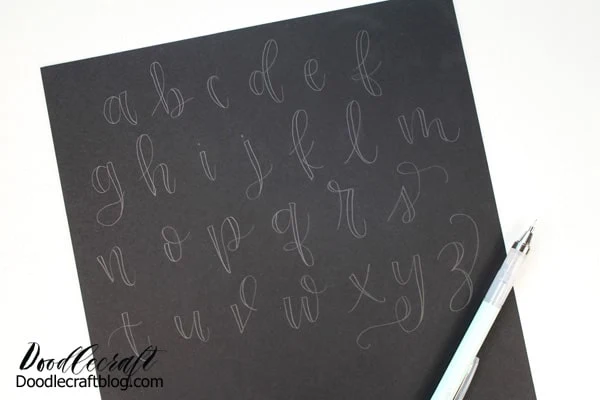 a b c d e f
g h i j k l m
n o p q r s
t u v w x y z
Doodlecraft
Doodlecraftblog.com